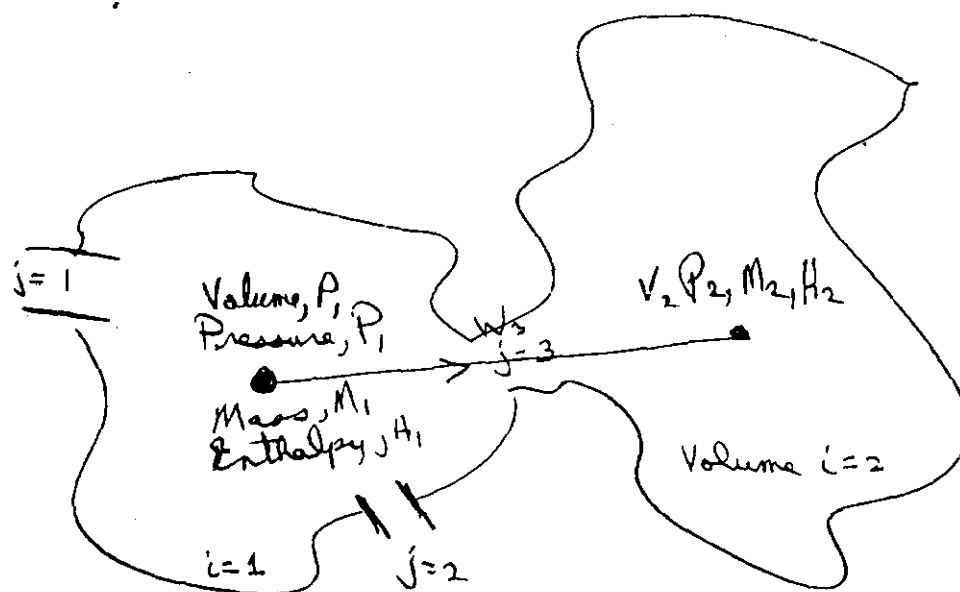 j = 1
Volume, P₁
Pressure, P₁
Mass, M₁
Enthalpy, H₁
W₃
j=3
V₂ P₂, M₂, H₂
Volume i=2
i=1
j=2